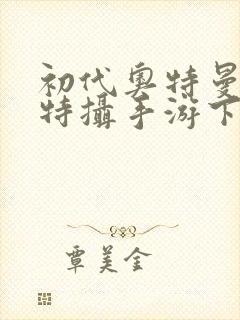 初代奥特曼
特攝手游下
覃美金